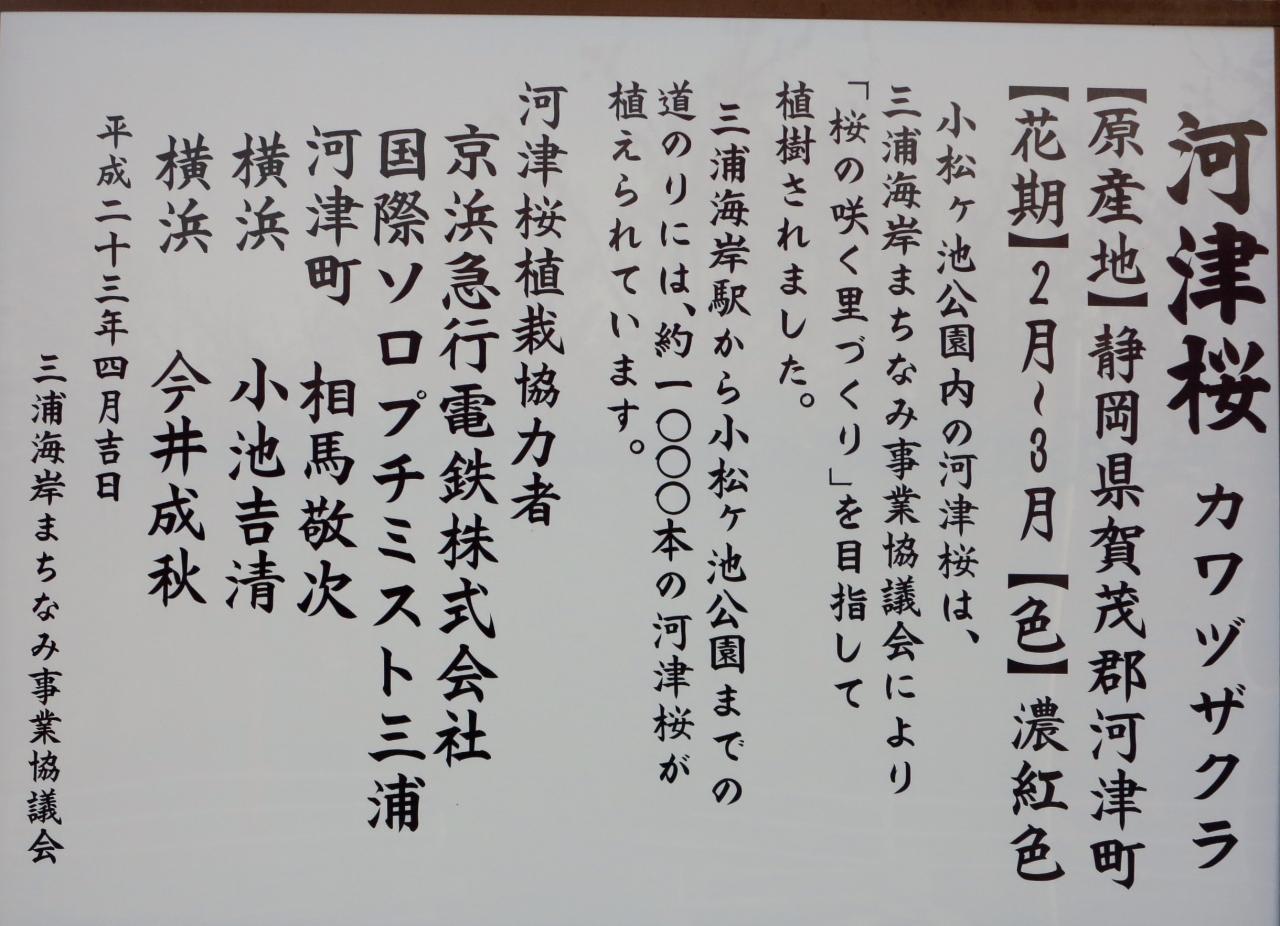 河津桜 カワヅザクラ
【原産地】静岡県賀茂郡河津町
【花期】2月~3月【色】濃紅色
小松ヶ池公園内の河津桜は、
三浦海岸まちなみ事業協議会により
「桜の咲く里づくり」を目指して
植樹されました。
三浦海岸駅から小松ヶ池公園までの
道のりには、約一〇〇〇本の河津桜が
植えられています。
河津桜植栽協力者
京浜急行電鉄株式会社
国際ソロプチミスト三浦
河津町 相馬敬次
横浜 小池吉清
横浜 今井成秋
平成二十三年四月吉日
三浦海岸まちなみ事業協議会